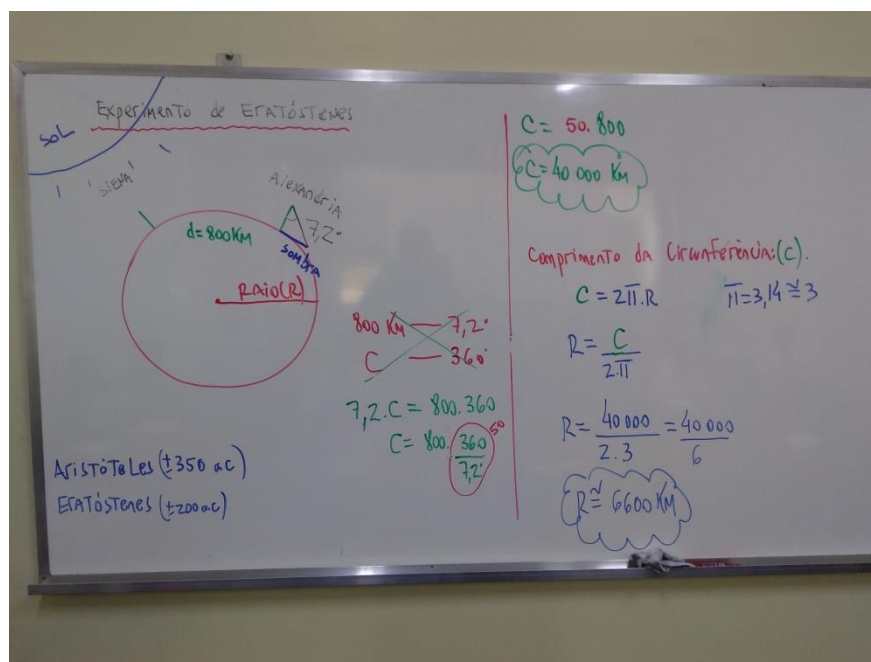 Experimento de Eratóstenes
SOL
'SIENA'
Alexandria
7,2°
d=800KM
SOMBRA
RAIO(R)
800 KM — 7,2°
C — 360°
7,2.C = 800.360
C= 800. 360/7,2° 50
Aristóteles (±350 a.c)
Eratóstenes (±200 a.c)
C= 50.800
C=40 000 KM
Comprimento da Circunferência:(C).
C = 2π.R
π=3,14≅3
R= C/2.π
R= 40 000/2.3 = 40 000/6
R≅ 6600 KM